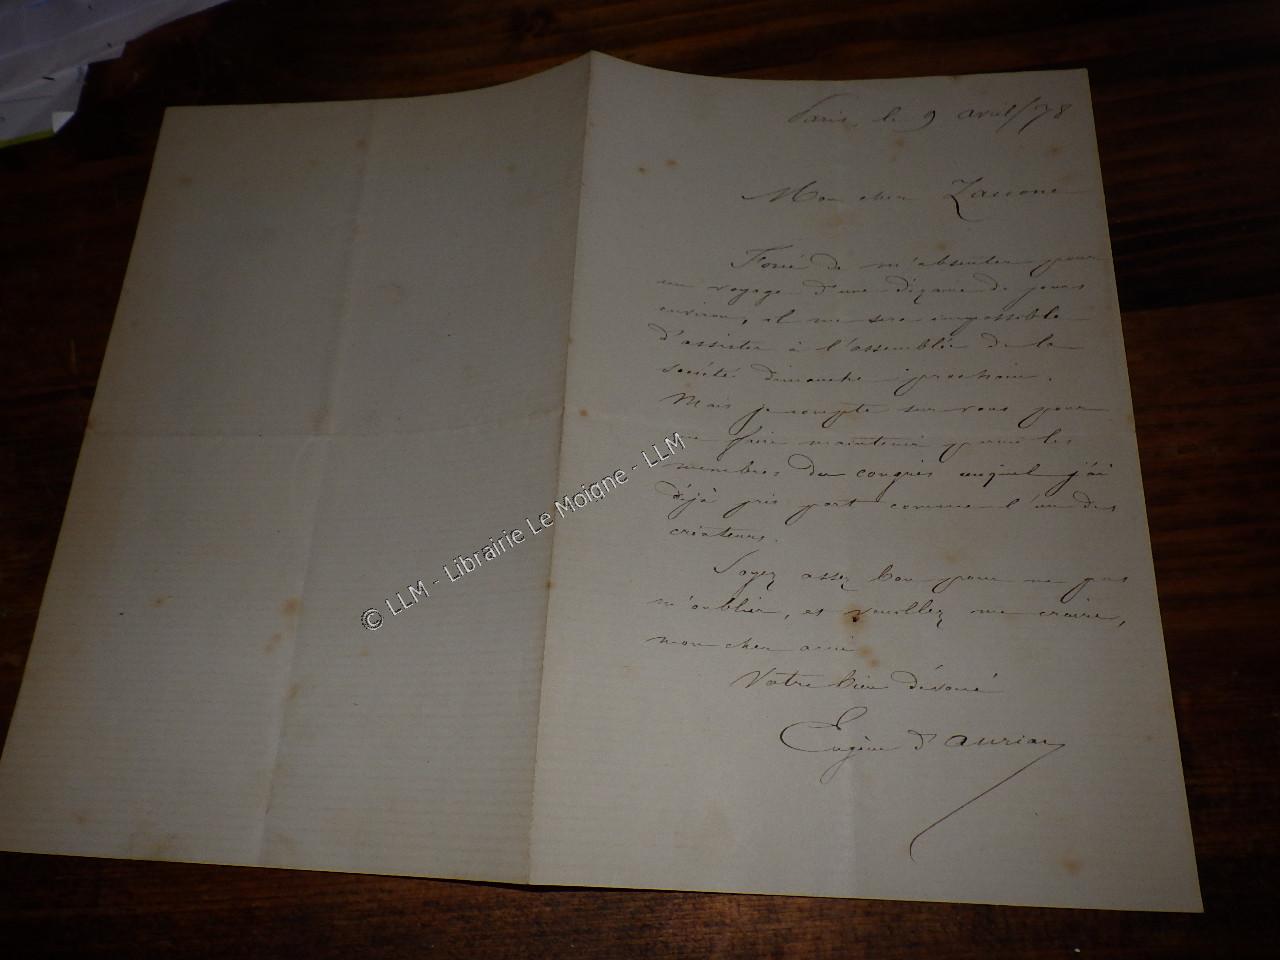 Paris, le 9 avril/78
Mon cher Zaccone
Forcé de m'absenter pour
un voyage d'une dizaine de jours
environ, il me sera impossible
d'assister à l'assemblée de la
société dimanche prochain.
Mais je compte sur vous pour
me faire maintenir parmi les
membres du congrès auquel j'ai
déjà pris part comme l'un des
créateurs.
Soyez assez bon pour ne pas
m'oublier, et veuillez me croire,
mon cher ami
Votre bien dévoué
Eugène d'Auriac
© LLM - Librairie Le Moigne - LLM